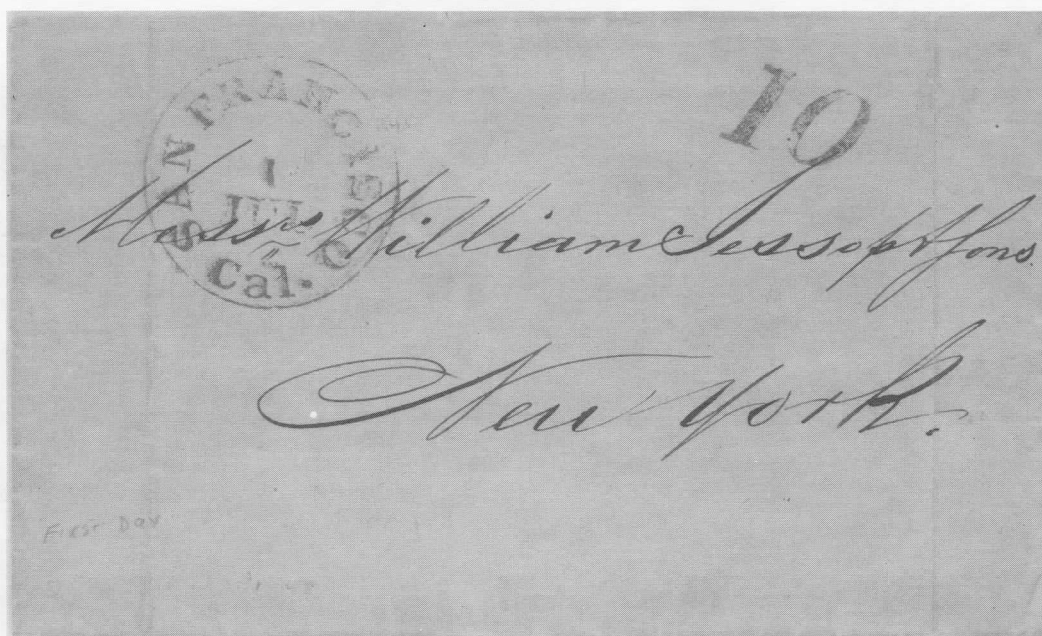 SAN FRANCISCO
1
JUL
Cal.
10
Messrs William Jessop & Sons
New York.
FIRST DAY